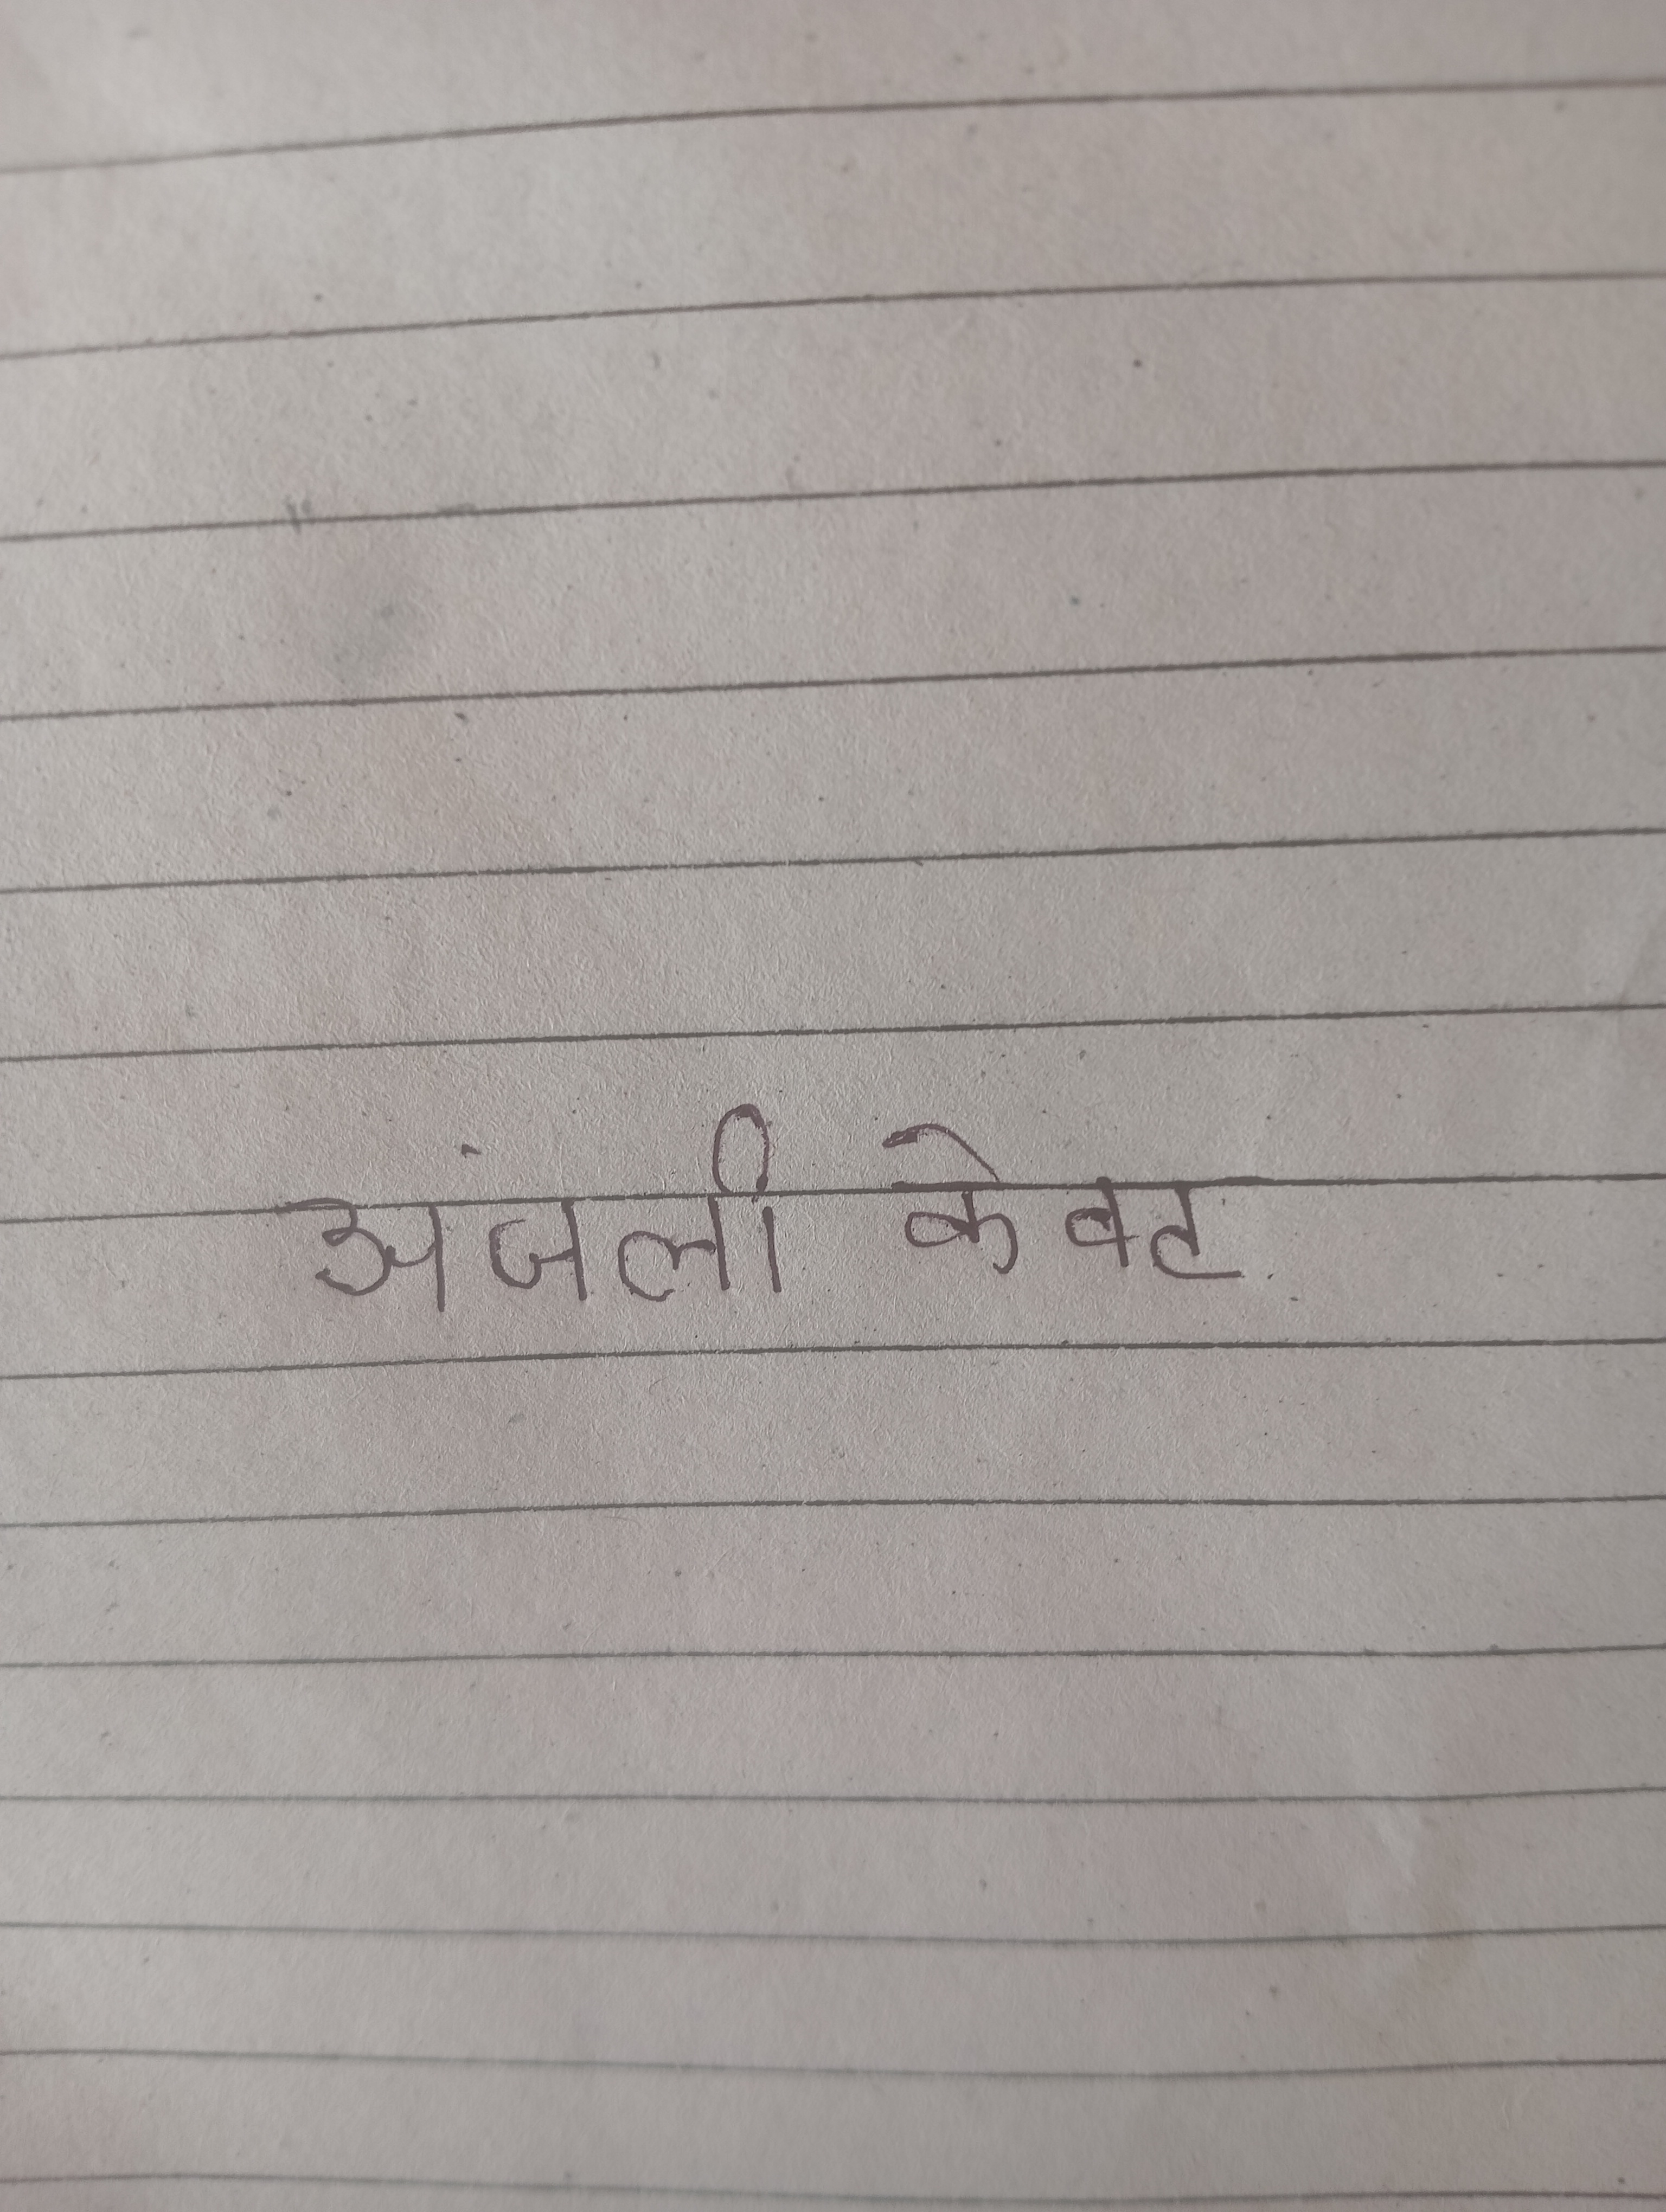 अंजली केवट